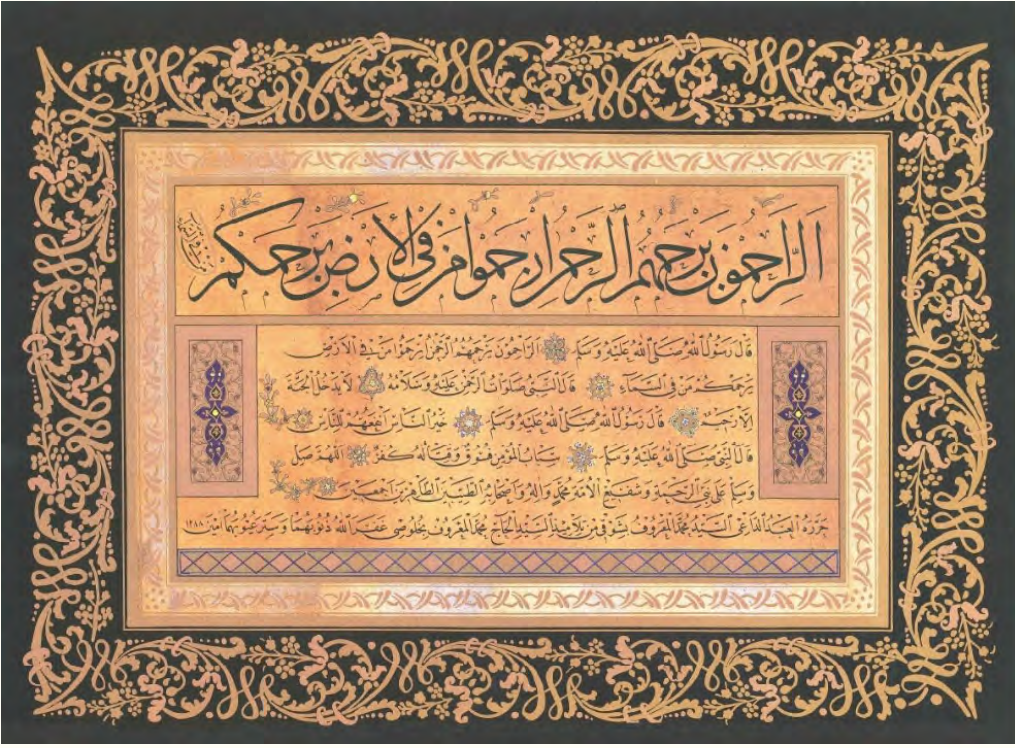 الراحمون يرحمهم الرحمن ارحموا من في الأرض يرحمكم
من في السماء
قال رسول الله صلى الله عليه وسلم الراحمون يرحمهم الرحمن ارحموا من في الأرض
يرحمكم من في السماء قال النبي صلوات الرحمن عليه وسلامه لا يدخل الجنة
إلا رحيم قال رسول الله صلى الله عليه وسلم خير الناس أنفعهم للناس
قال النبي صلى الله عليه وسلم سباب المؤمن فسوق وقتاله كفر اللهم صل
وسلم على نبي الرحمة وشفيع الأمة محمد وآله وأصحابه الطيبين الطاهرين أجمعين
حرره العبد الداعي السيد محمد المعروف بشوقي من تلاميذ السيد الحاج محمد المعروف بخلوصي عفر الله ذنوبهما وستر عيوبهما آمين ١٢٨٨